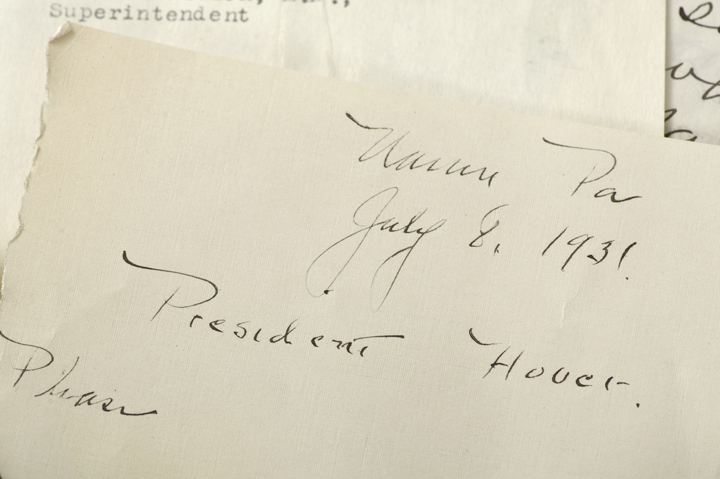 Superintendent
Pa
July 8, 1931.
President Hover.
Please